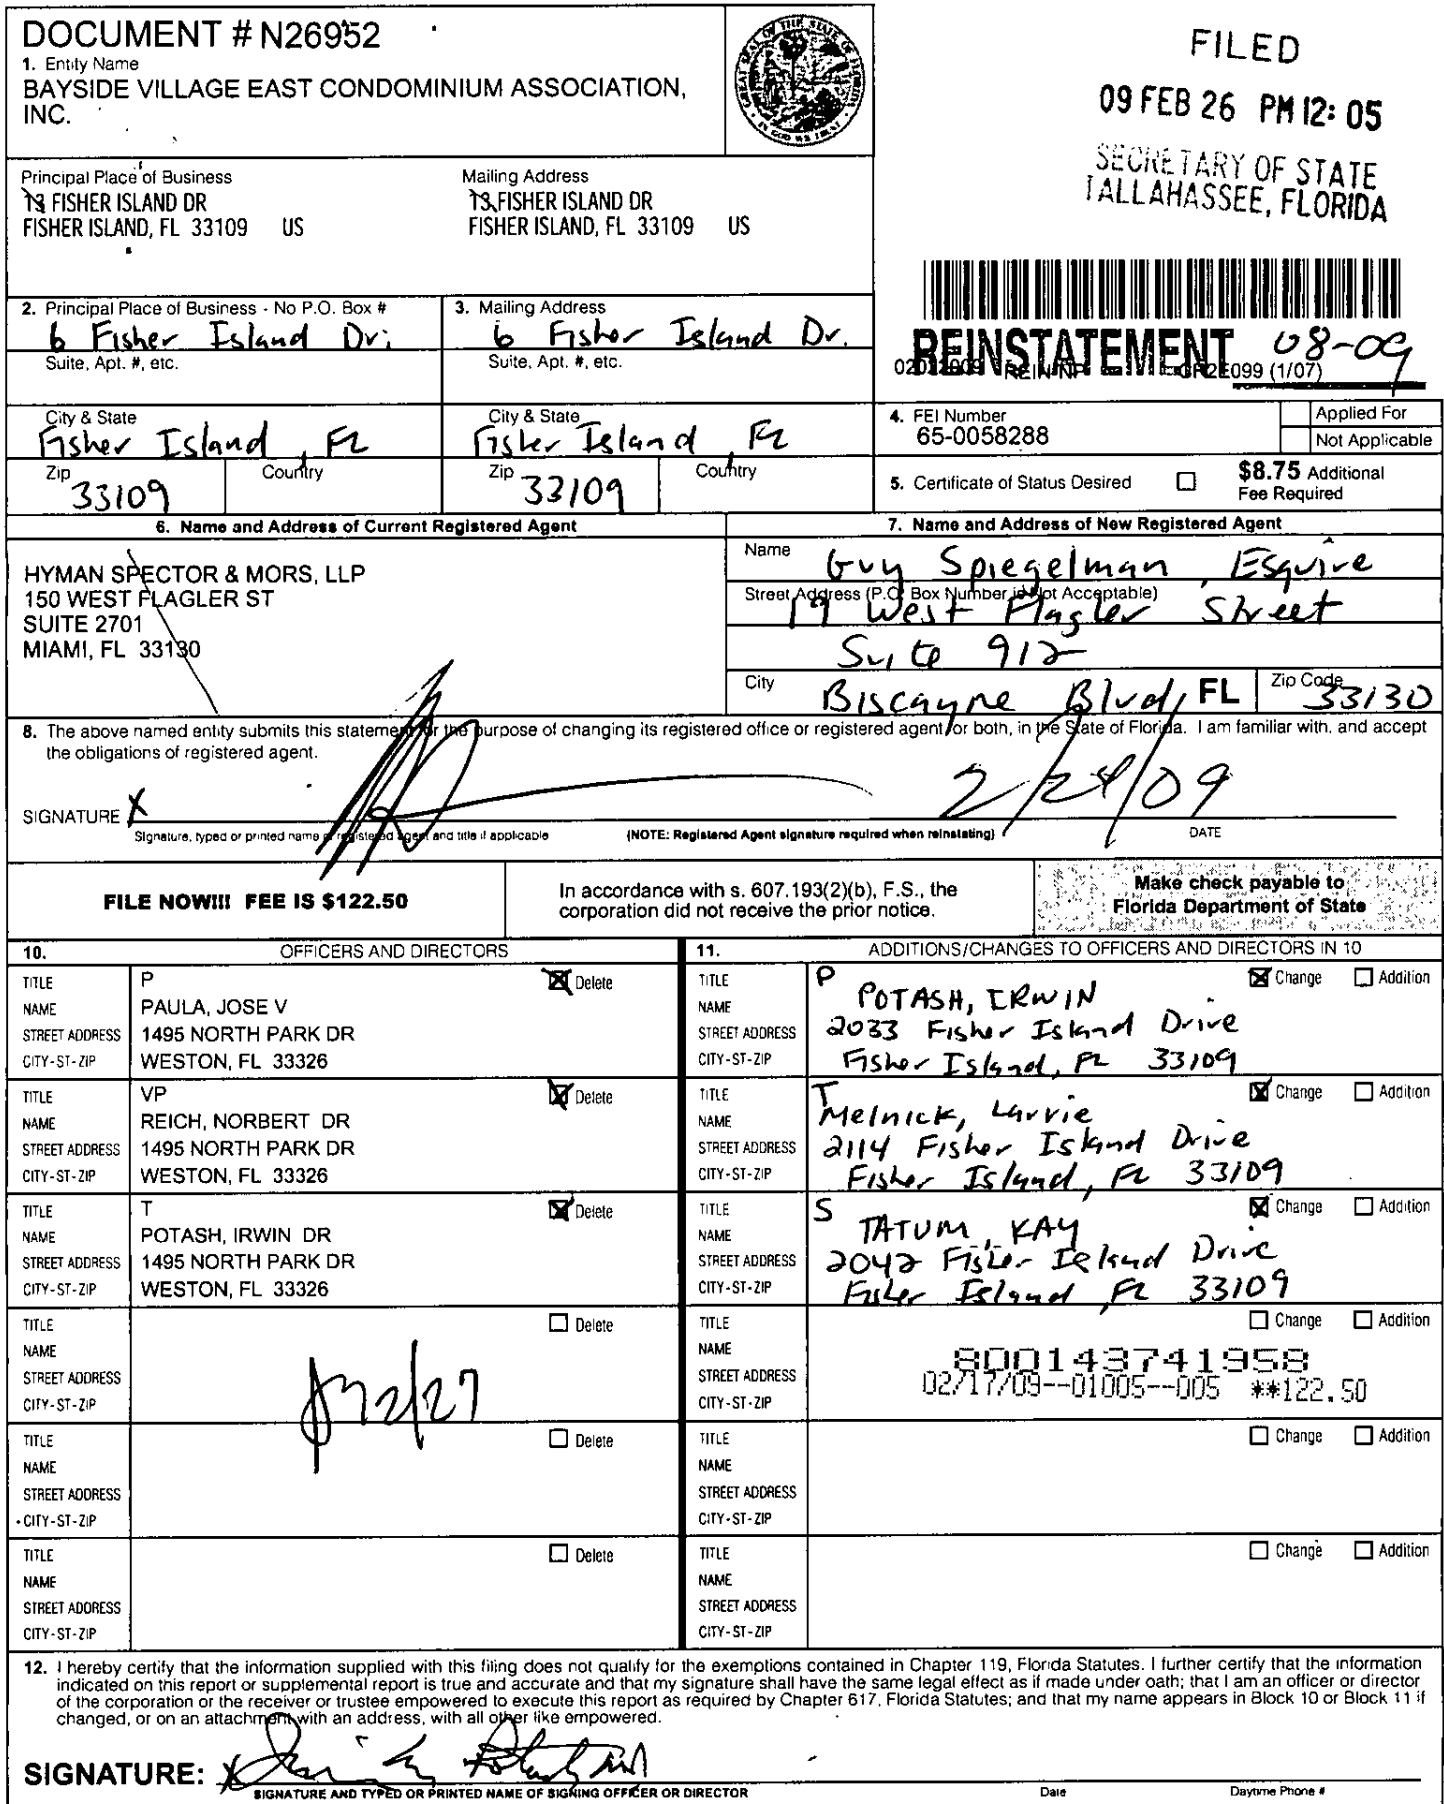 DOCUMENT # N26952
1. Entity Name
BAYSIDE VILLAGE EAST CONDOMINIUM ASSOCIATION,
INC.
GREAT SEAL OF THE STATE OF FLORIDA
IN GOD WE TRUST
FILED
09 FEB 26 PM 12: 05
SECRETARY OF STATE
TALLAHASSEE, FLORIDA
Principal Place of Business
FISHER ISLAND DR
FISHER ISLAND, FL 33109 US
Mailing Address
FISHER ISLAND DR
FISHER ISLAND, FL 33109 US
REINSTATEMENT 08-09
REIN-NP CR2E099 (1/07)
2. Principal Place of Business - No P.O. Box #
6 Fisher Island Dr.
Suite, Apt. #, etc.
City & State
Fisher Island, FL
Zip
33109
Country
3. Mailing Address
6 Fisher Island Dr.
Suite, Apt. #, etc.
City & State
Fisher Island, FL
Zip
33109
Country
4. FEI Number
65-0058288
Applied For
Not Applicable
5. Certificate of Status Desired
$8.75 Additional
Fee Required
6. Name and Address of Current Registered Agent
HYMAN SPECTOR & MORS, LLP
150 WEST FLAGLER ST
SUITE 2701
MIAMI, FL 33130
7. Name and Address of New Registered Agent
Name
Guy Spiegelman, Esquire
Street Address (P.O. Box Number is Not Acceptable)
19 West Flagler Street
Suite 912
City
Biscayne Blvd, FL
Zip Code
33130
8. The above named entity submits this statement for the purpose of changing its registered office or registered agent, or both, in the State of Florida. I am familiar with, and accept
the obligations of registered agent.
2/24/09
SIGNATURE X
Signature, typed or printed name of registered agent and title if applicable
(NOTE: Registered Agent signature required when reinstating)
DATE
FILE NOW!!! FEE IS $122.50
In accordance with s. 607.193(2)(b), F.S., the
corporation did not receive the prior notice.
Make check payable to
Florida Department of State
10. OFFICERS AND DIRECTORS
TITLE P Delete
NAME PAULA, JOSE V
STREET ADDRESS 1495 NORTH PARK DR
CITY-ST-ZIP WESTON, FL 33326
TITLE VP Delete
NAME REICH, NORBERT DR
STREET ADDRESS 1495 NORTH PARK DR
CITY-ST-ZIP WESTON, FL 33326
TITLE T Delete
NAME POTASH, IRWIN DR
STREET ADDRESS 1495 NORTH PARK DR
CITY-ST-ZIP WESTON, FL 33326
TITLE Delete
NAME
STREET ADDRESS
CITY-ST-ZIP
2/27
TITLE Delete
NAME
STREET ADDRESS
CITY-ST-ZIP
TITLE Delete
NAME
STREET ADDRESS
CITY-ST-ZIP
11. ADDITIONS/CHANGES TO OFFICERS AND DIRECTORS IN 10
TITLE P Change Addition
NAME POTASH, IRWIN
STREET ADDRESS 2033 Fisher Island Drive
CITY-ST-ZIP Fisher Island, FL 33109
TITLE T Change Addition
NAME Melnick, Larrie
STREET ADDRESS 2114 Fisher Island Drive
CITY-ST-ZIP Fisher Island, FL 33109
TITLE S Change Addition
NAME TATUM, KAY
STREET ADDRESS 2042 Fisher Island Drive
CITY-ST-ZIP Fisher Island, FL 33109
TITLE Change Addition
NAME 800143741958
STREET ADDRESS 02/17/09--01005--005 **122.50
CITY-ST-ZIP
TITLE Change Addition
NAME
STREET ADDRESS
CITY-ST-ZIP
TITLE Change Addition
NAME
STREET ADDRESS
CITY-ST-ZIP
12. I hereby certify that the information supplied with this filing does not qualify for the exemptions contained in Chapter 119, Florida Statutes. I further certify that the information
indicated on this report or supplemental report is true and accurate and that my signature shall have the same legal effect as if made under oath; that I am an officer or director
of the corporation or the receiver or trustee empowered to execute this report as required by Chapter 617, Florida Statutes; and that my name appears in Block 10 or Block 11 if
changed, or on an attachment with an address, with all other like empowered.
SIGNATURE: X
SIGNATURE AND TYPED OR PRINTED NAME OF SIGNING OFFICER OR DIRECTOR
Date
Daytime Phone #